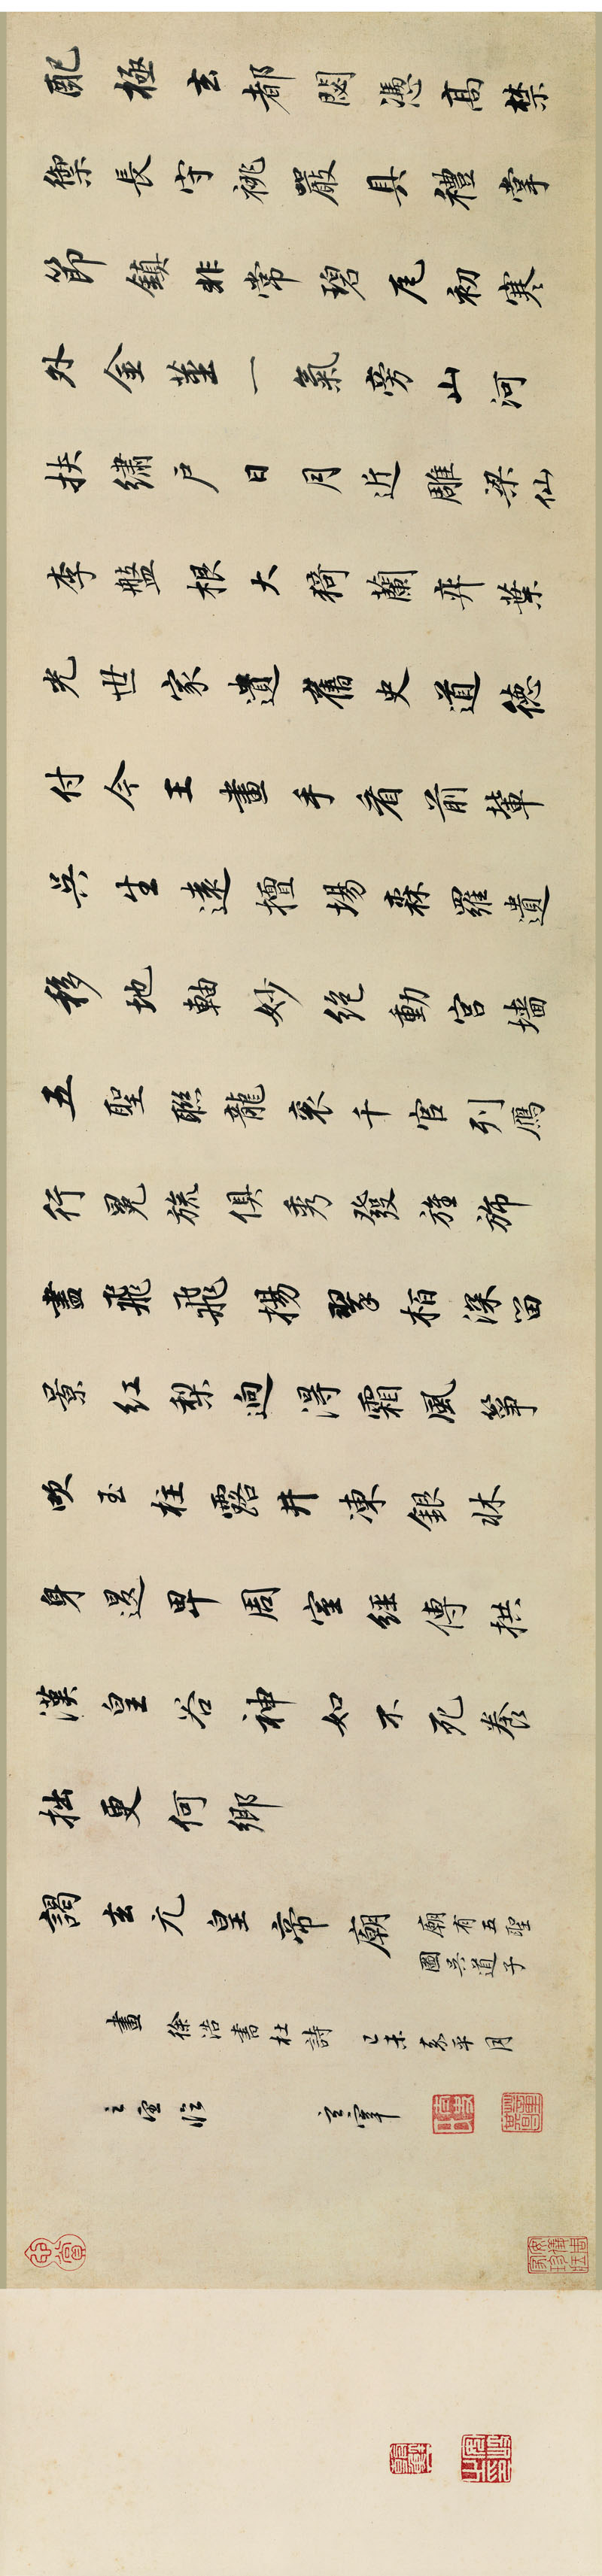 配極玄都閟憑高禁
禦長守祧嚴具禮掌
節鎮非常碧瓦初寒
外金莖一氣旁山河
扶繡戶日月近雕梁仙
李盤根大猗蘭弈葉
光世家遺舊史道德
付今王畫手看前輩
吳生遠擅場森羅遺
移地軸妙絕動宮墻
五聖聯龍衮千官列鴈
行冕旒俱秀發旌旆
盡飛飛揚翠柏深留
景紅梨迥得霜風箏
吹玉柱露井凍銀牀
身退卑周室經傳拱
漢皇谷神如不死養
拙更何鄉
謁玄元皇帝廟 廟有五聖
圖吳道子
畫 徐浩書杜詩 月
之 臨 玄宰